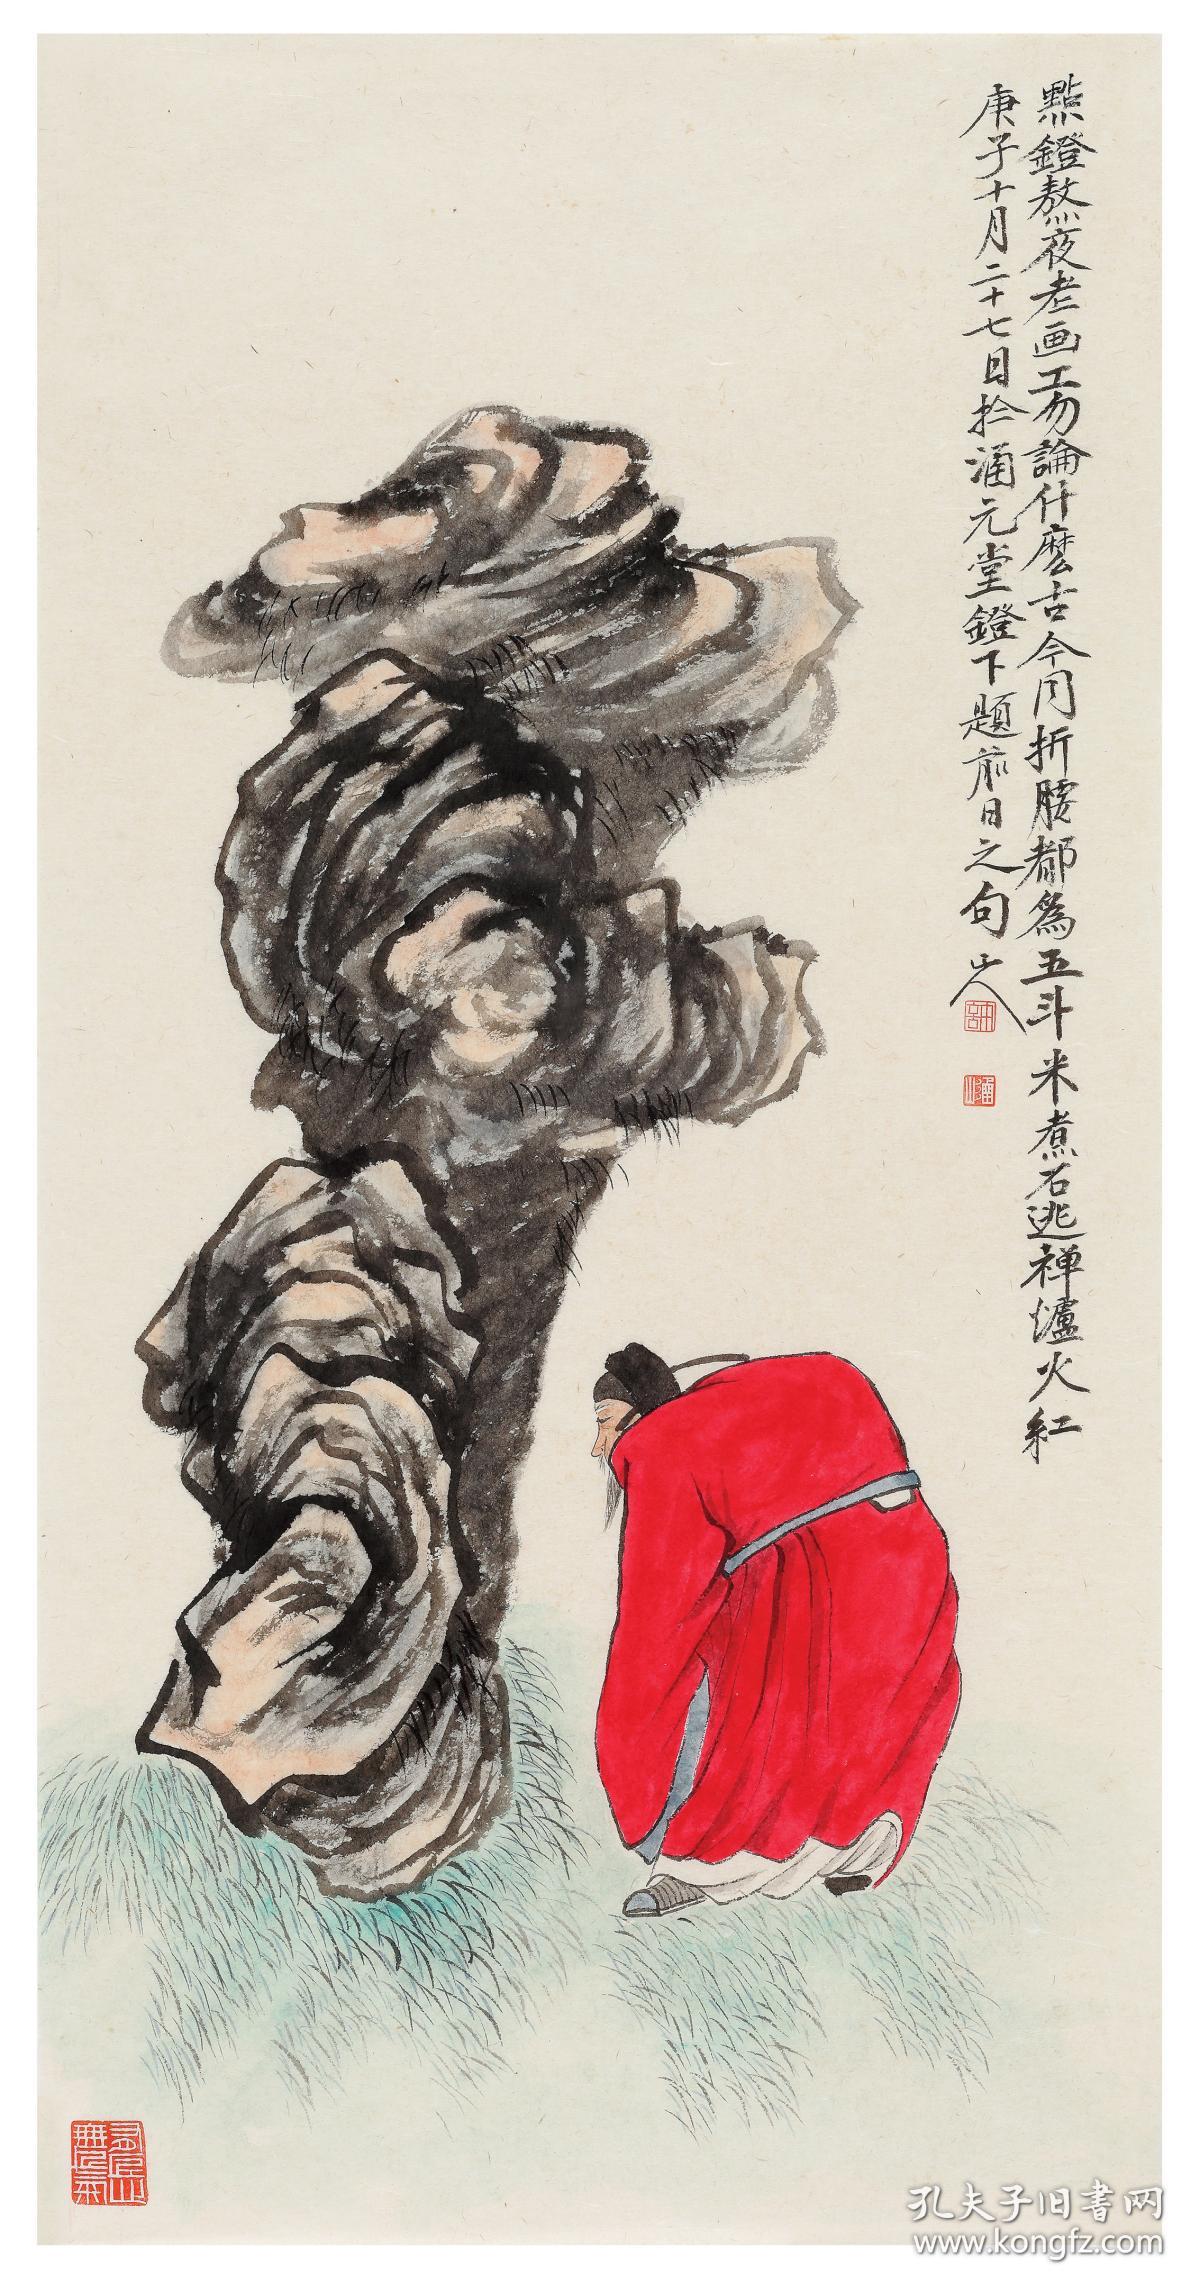 點鐙熬夜老画工勿論什麽古今同折腰都為五斗米煮石逃禅爐火紅
庚子十月二十七日於涌元堂鐙下題前日之句
孔夫子旧书网
www.kongfz.com